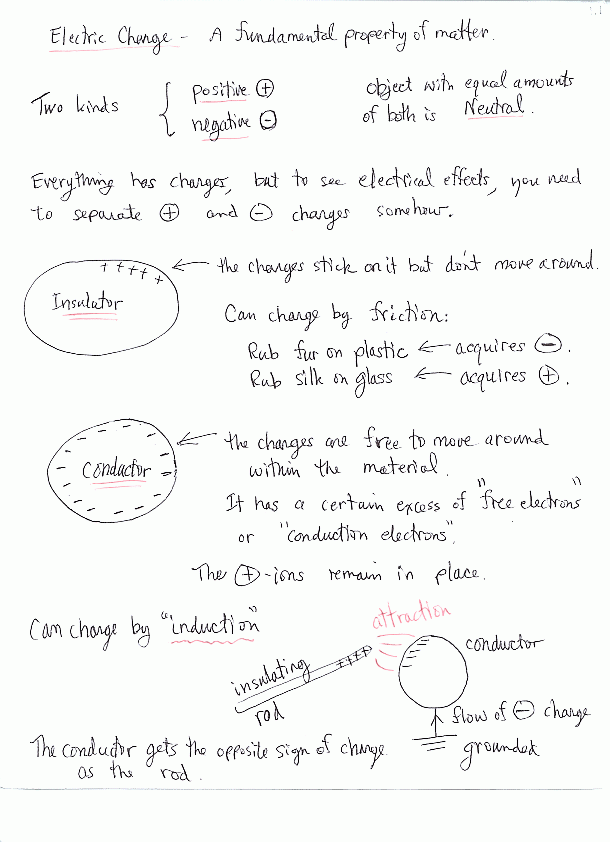 1.1
Electric Charge - A fundamental property of matter.
Two kinds { positive ⊕
negative ⊖
object with equal amounts
of both is Neutral.
Everything has charges, but to see electrical effects, you need
to separate ⊕ and ⊖ charges somehow.
+ + + + +
Insulator
← the charges stick on it but don't move around.
Can charge by friction:
Rub fur on plastic ← acquires ⊖.
Rub silk on glass ← acquires ⊕.
Conductor
← the charges are free to move around
within the material.
It has a certain excess of "free electrons"
or "conduction electrons".
The ⊕-ions remain in place.
Can charge by "induction"
attraction
insulating
rod
++++
conductor
flow of ⊖ charge
grounded
The conductor gets the opposite sign of charge
as the rod.